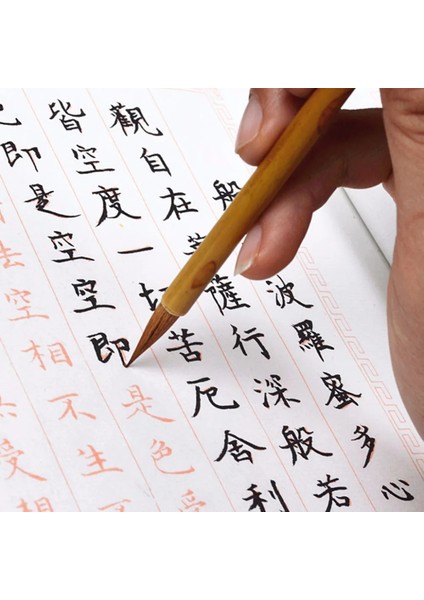 般波羅蜜多心
觀自在菩薩行深般若
皆空度一切苦厄舍利
即是空空即是色受
法空相不生不
受想